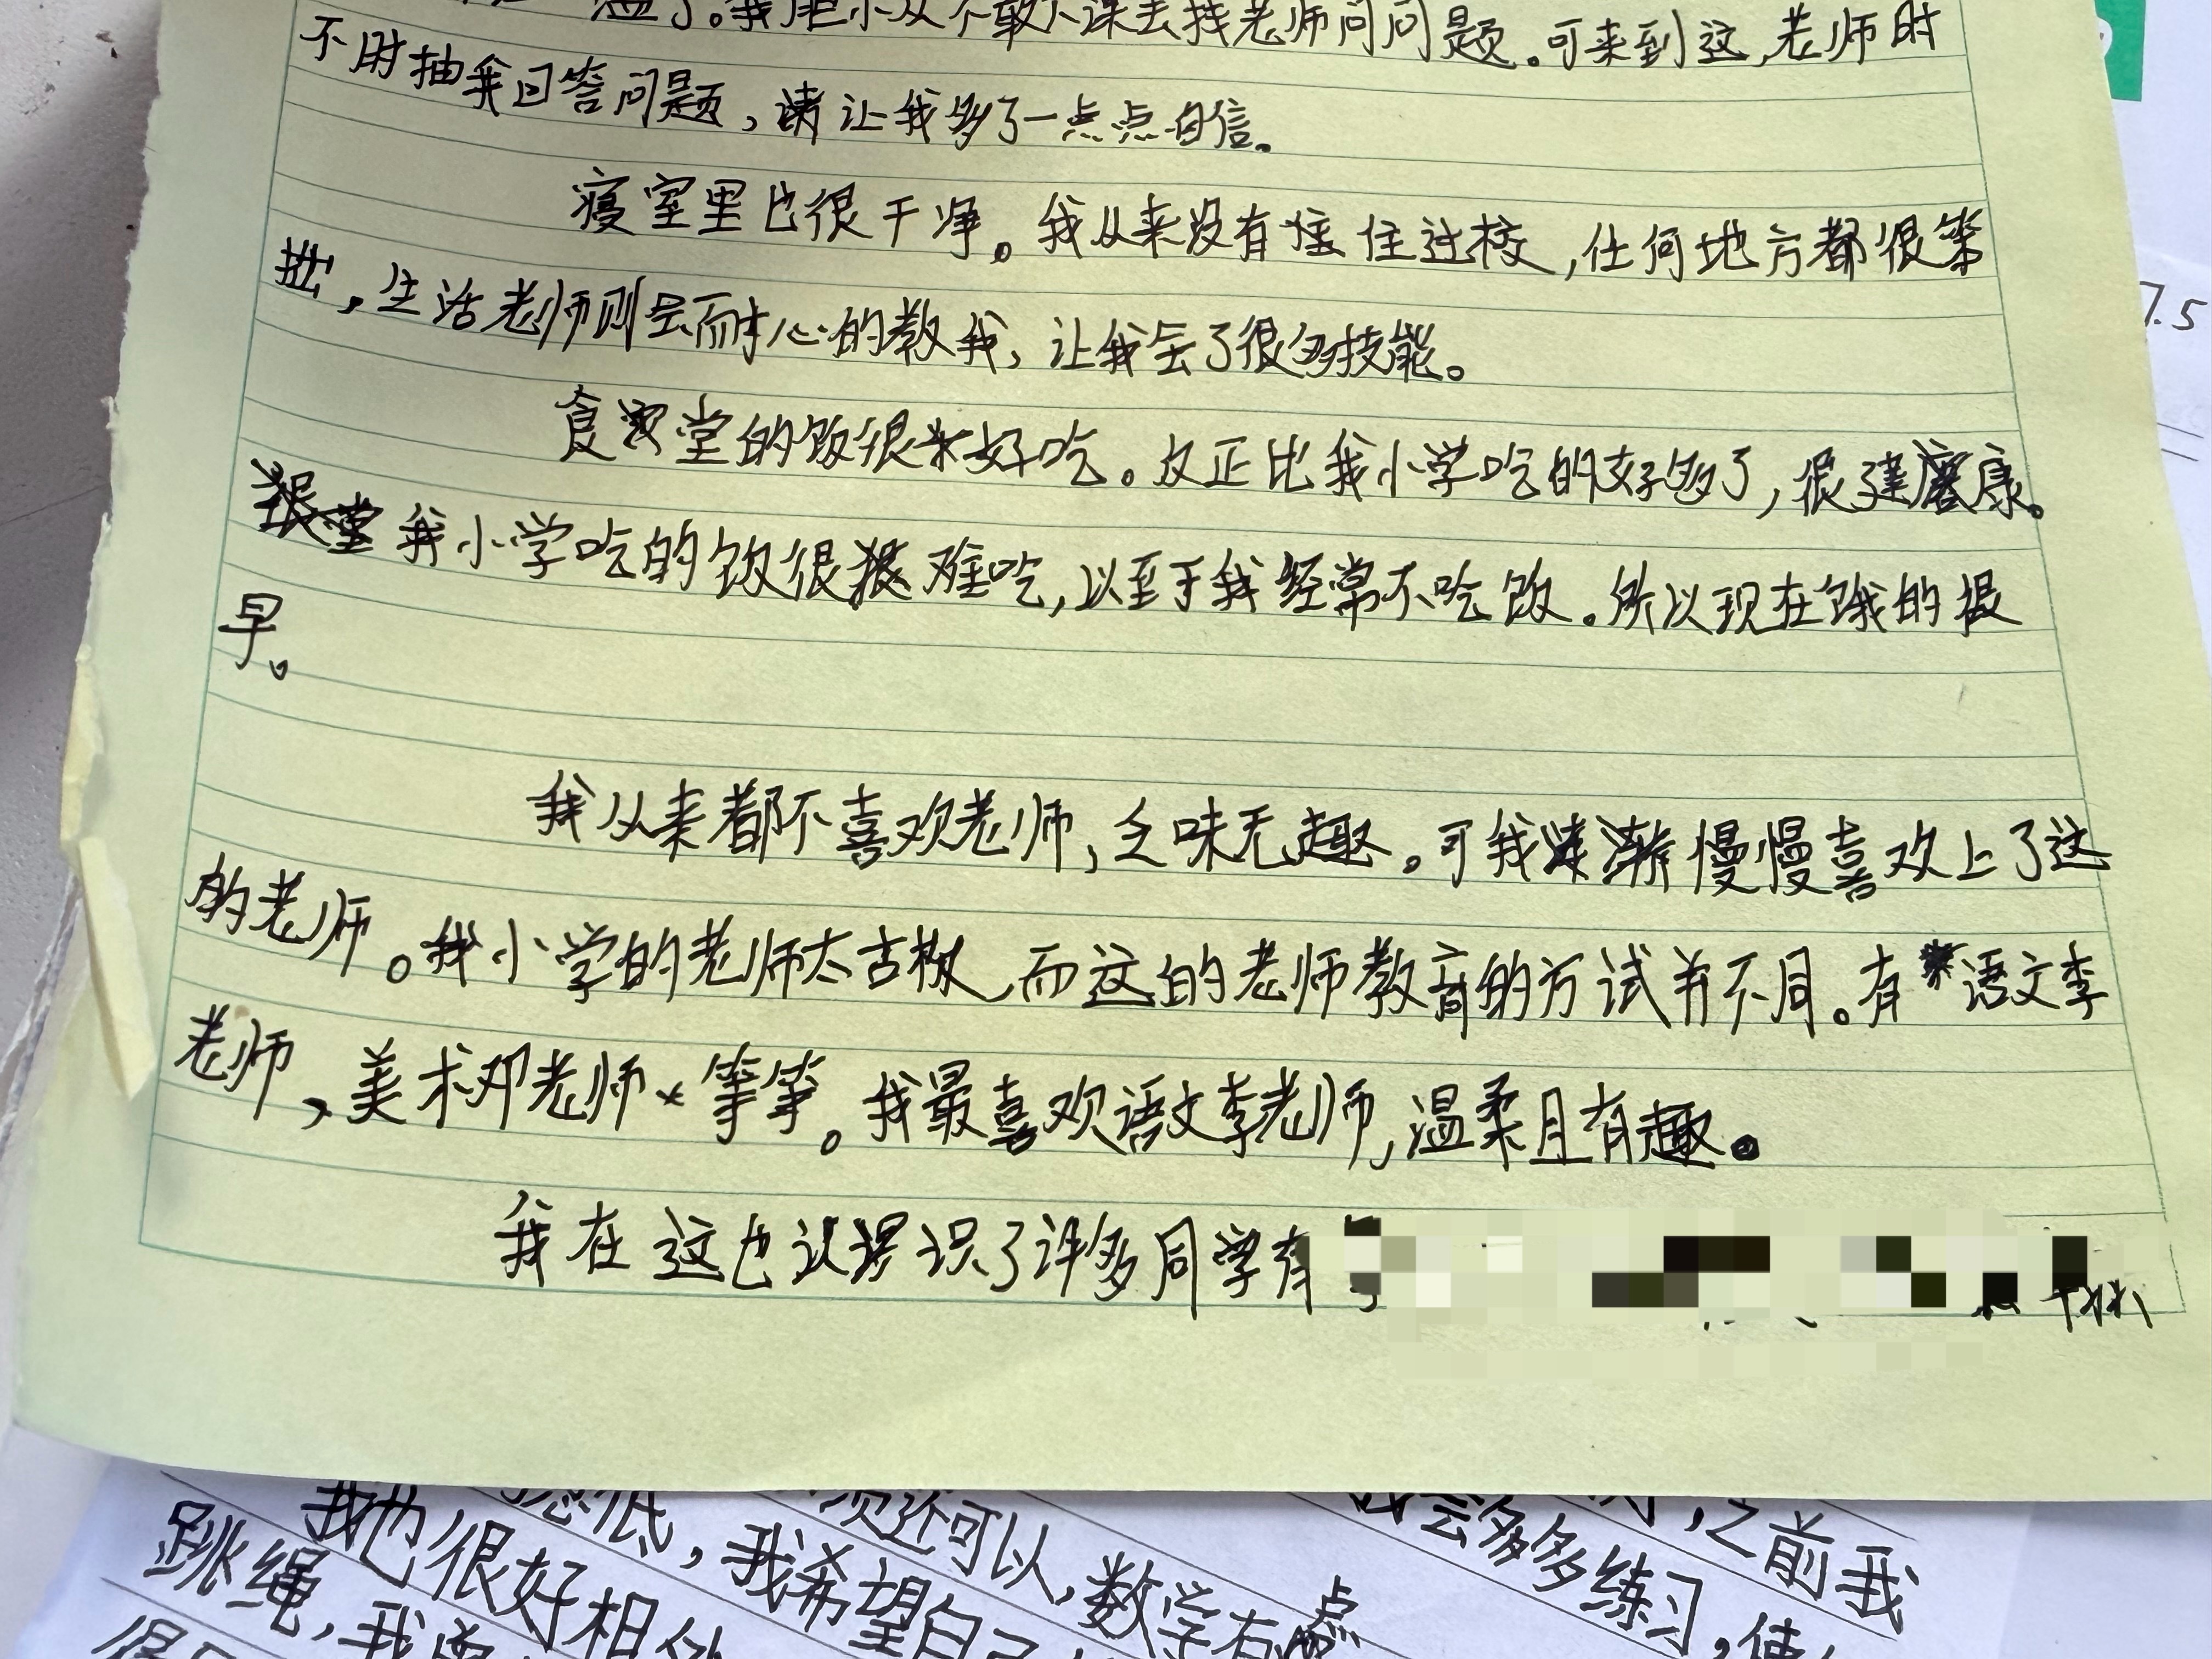 了。我胆小从不敢下课去找老师问问题。可来到这,老师时
不时抽我回答问题,让我多了一点点自信。
寝室里也很干净。我从来没有住过校,任何地方都很笨
拙,生活老师则会耐心的教我,让我会了很多技能。
食堂的饭很好吃。反正比我小学吃的好多了,很健康。
我小学吃的饭很难吃,以至于我经常不吃饭。所以现在饿的很
早。
我从来都不喜欢老师,乏味无趣。可我渐慢慢喜欢上了这
的老师。我小学的老师太古板,而这的老师教育的方试并不同。有语文李
老师,美术邓老师等等。我最喜欢语文李老师,温柔且有趣。
我在这也认识了许多同学有
7.5
我也很好相
低,我希望自己
还可以,数学有点
我会多多练习,使
,之前我
跳绳,我